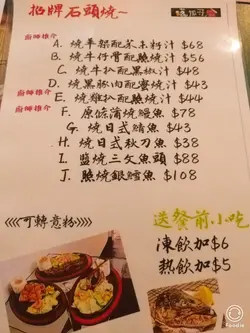 招牌石頭燒~
廚師推介 A. 燒羊架配芥末籽汁 $68
B. 燒牛仔骨配照燒汁 $56
C. 燒牛扒配黑椒汁 $48
廚師推介 D. 燒黑豚肉配蜜燒汁 $43
廚師推介 E. 燒雞扒配照燒汁 $44
F. 原條蒲燒鰻魚 $78
G. 燒日式鯖魚 $43
H. 燒日式秋刀魚 $38
I. 鹽燒三文魚頭 $88
J. 照燒銀鱈魚 $108
<<<<可轉意粉>>>>
送餐前小吃
凍飲加$6
熱飲加$5